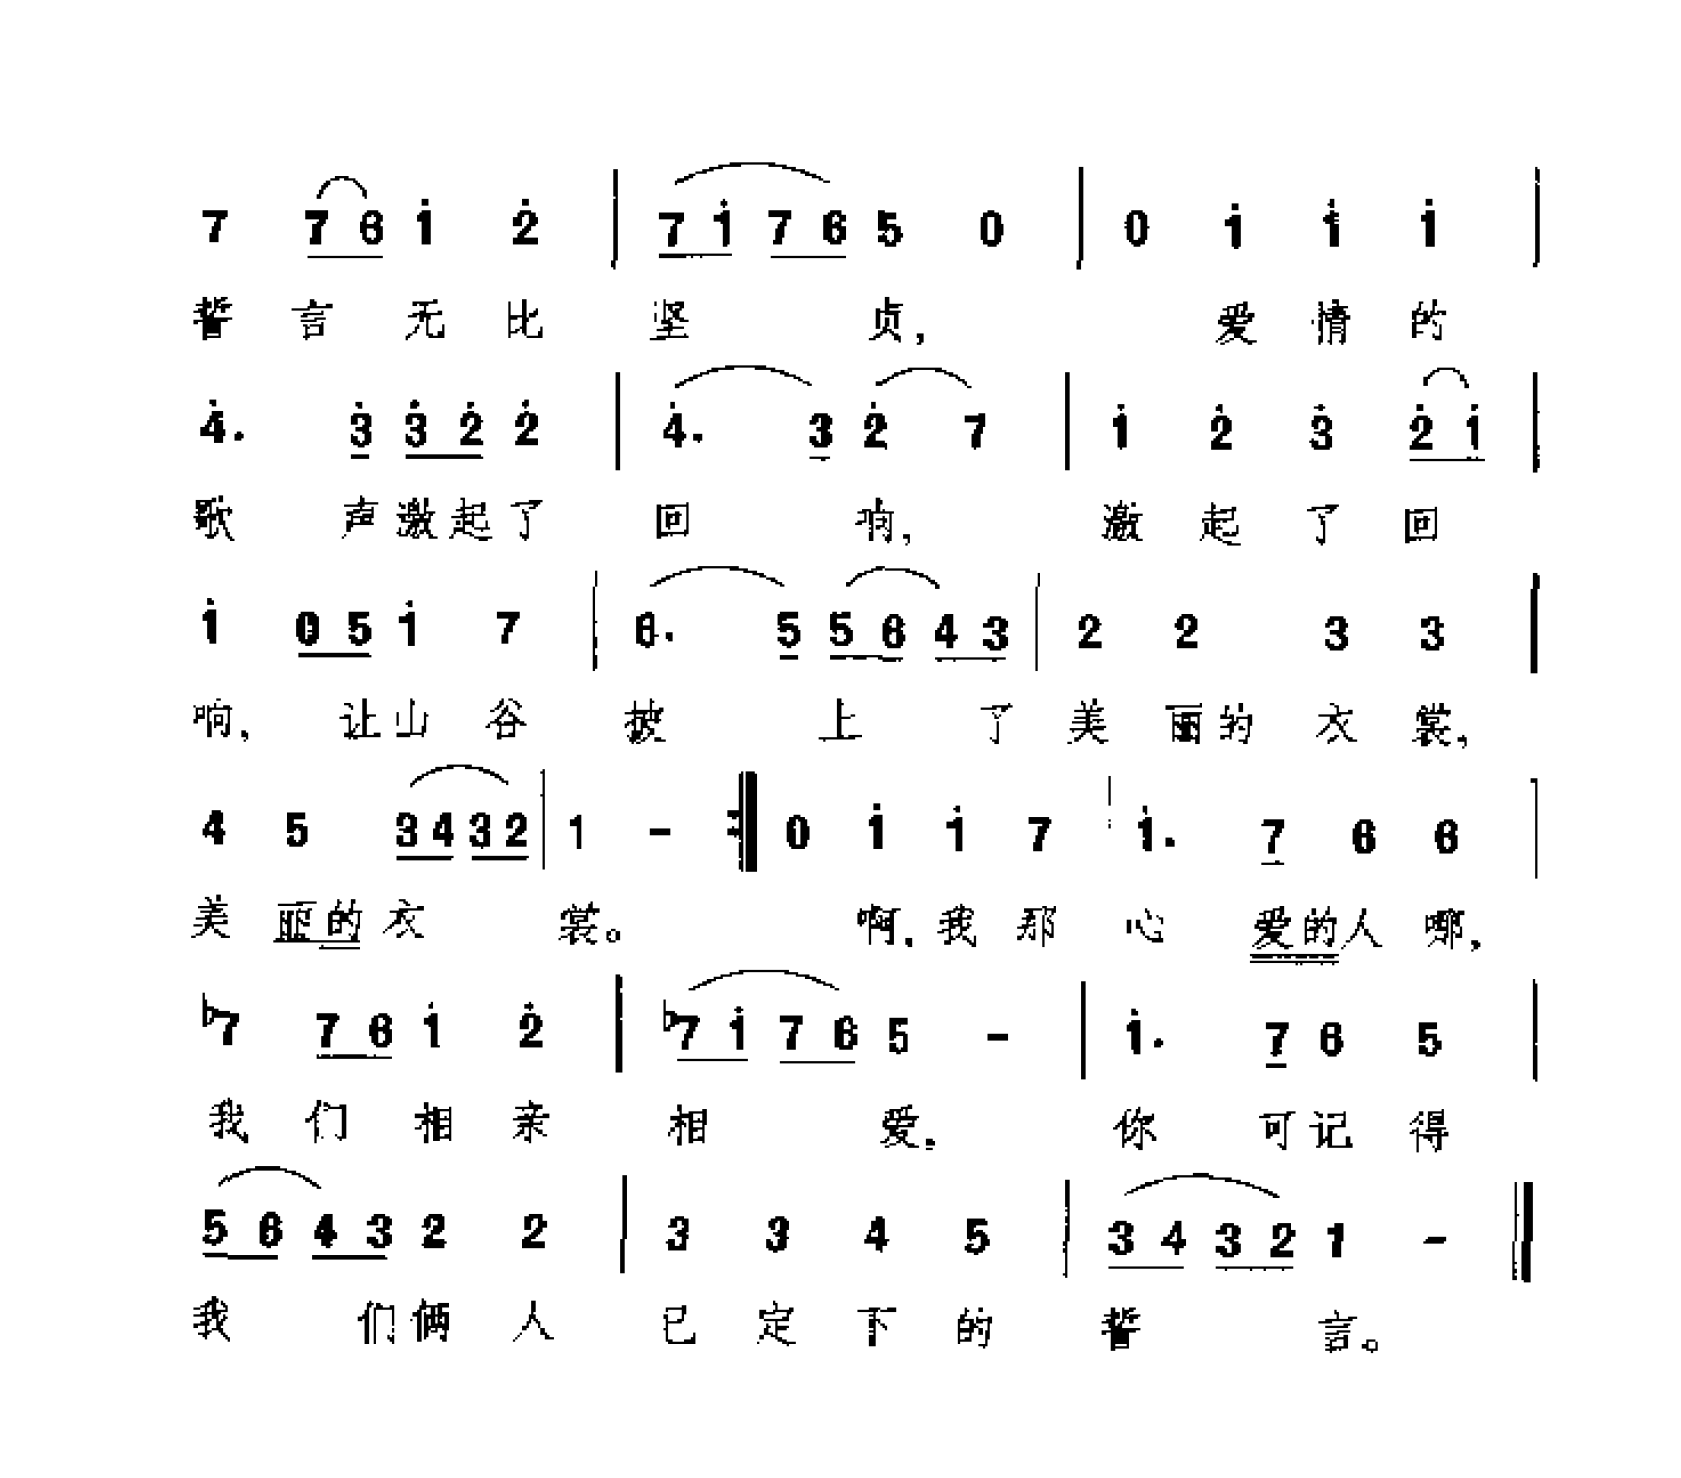 7 7 6 1̇ 2̇ | 7 1̇ 7 6 5 0 | 0 1̇ 1̇ 1̇ |
誓 言 无 比 坚 贞, 爱 情 的
4̇. 3̇ 3̇ 2̇ 2̇ | 4̇. 3 2̇ 7 | 1̇ 2̇ 3̇ 2̇ 1̇ |
歌 声 激 起 了 回 响, 激 起 了 回
1̇ 0 5 1̇ 7 | 6. 5 5 6 4 3 | 2 2 3 3 |
响, 让 山 谷 披 上 了 美 丽 的 衣 裳,
4 5 3 4 3 2 | 1 - :‖ 0 1̇ 1̇ 7 | 1̇. 7 6 6 |
美 丽 的 衣 裳。 啊, 我 那 心 爱 的 人 哪,
♭7 7 6 1̇ 2̇ | ♭7 1̇ 7 6 5 - | 1̇. 7 6 5 |
我 们 相 亲 相 爱, 你 可 记 得
5 6 4 3 2 2 | 3 3 4 5 | 3 4 3 2 1 - ‖
我 们 俩 人 已 定 下 的 誓 言。